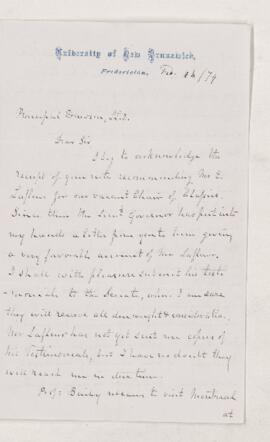 University of New Brunswick,
Fredericton, Feb. 24/79
Principal Dawson, LL.D.
Dear Sir
I beg to acknowledge the
receipt of your note recommending Mr E.
Lafleur for our vacant Chair of Classics.
Since then the Lieut. Governor has put into
my hands a letter from you to him giving
a very favorable account of Mr Lafleur.
I shall with pleasure submit his testi-
monials to the Senate, when I am sure
they will receive all due weight & consideration.
Mr Lafleur has not yet sent me copies of
his Testimonials, but I have no doubt they
will reach me in due time.
Prof. Bailey means to visit Montreal
at